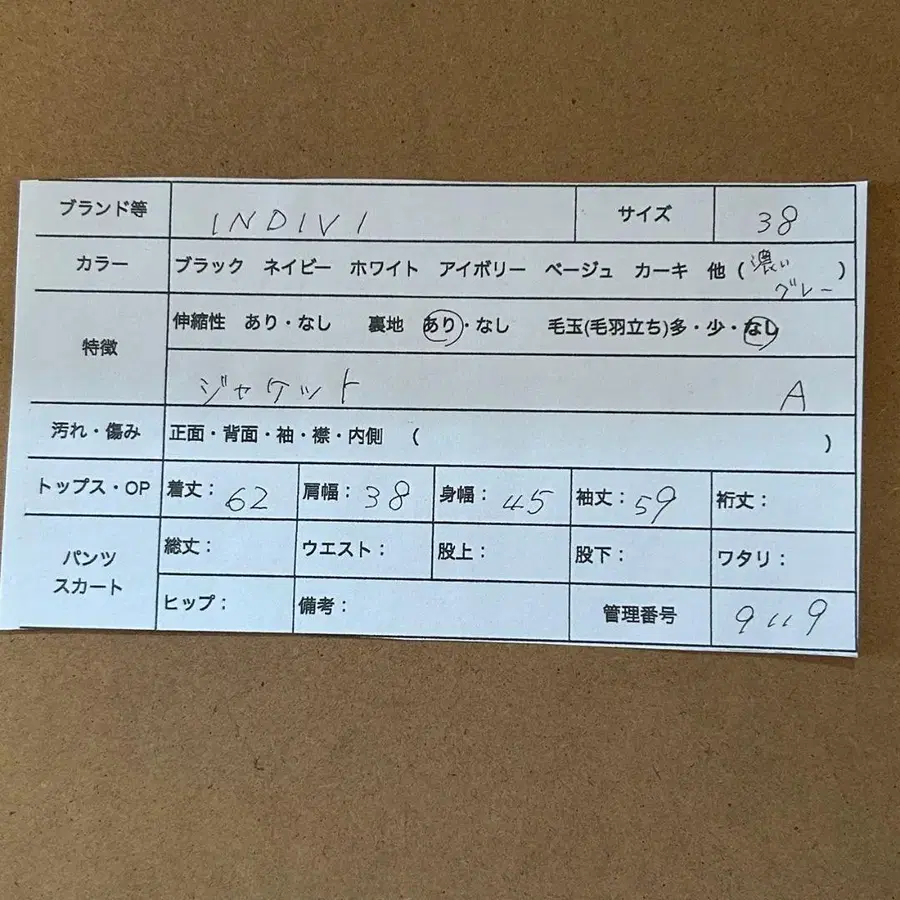 ブランド等 INDIVI サイズ 38
カラー ブラック ネイビー ホワイト アイボリー ベージュ カーキ 他(濃いグレー)
特徴 伸縮性 あり・なし 裏地 あり・なし 毛玉(毛羽立ち)多・少・なし
ジャケット A
汚れ・傷み 正面・背面・袖・襟・内側 ( )
トップス・OP 着丈:62 肩幅:38 身幅:45 袖丈:59 裄丈:
パンツ スカート 総丈: ウエスト: 股上: 股下: ワタリ:
ヒップ: 備考: 管理番号 9119